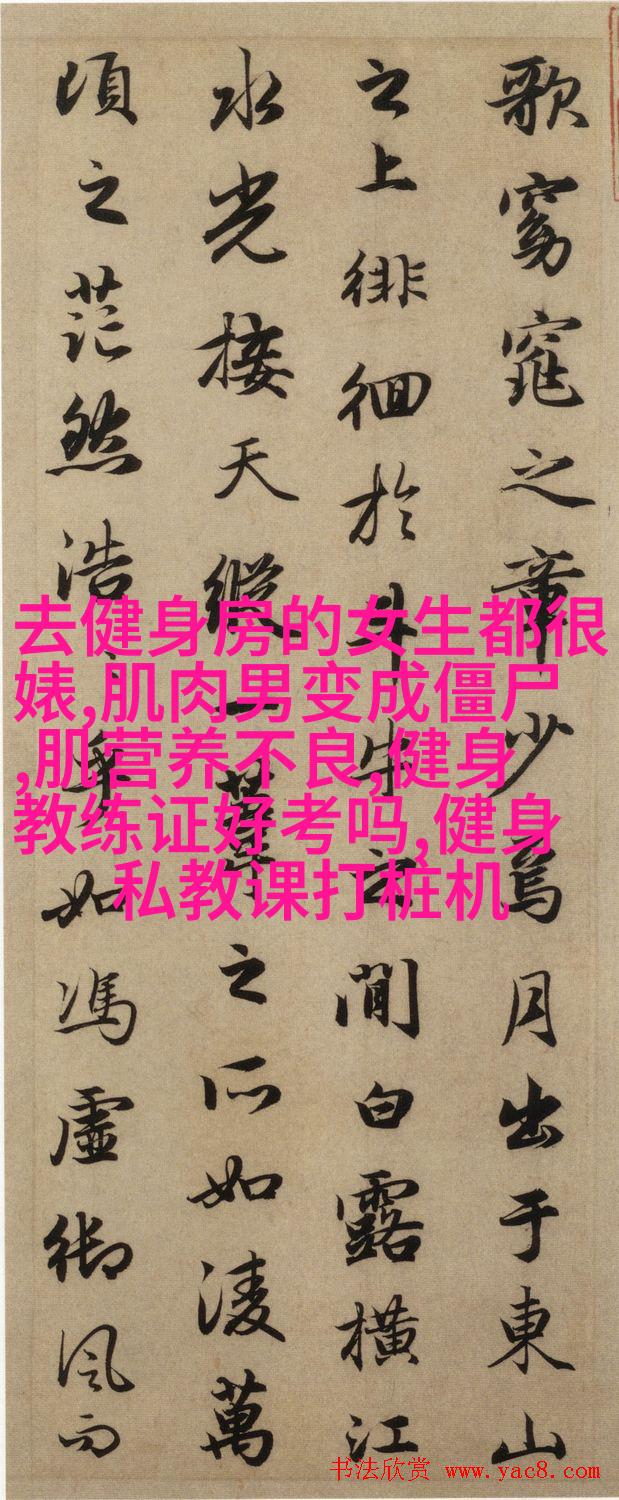 歌窈窕之章少焉月出于東山
之上徘徊於斗牛之間白露橫江
水光接天縱一葦之所如淩萬
頃之茫然浩〻乎如馮虛御風而
去健身房的女生都很
婊,肌肉男变成僵尸
,肌营养不良,健身
教练证好考吗,健身
私教课打桩机
书法欣赏 www.yac8.com